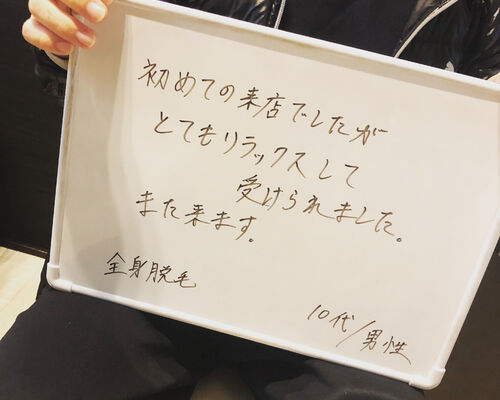 初めての来店でしたが
とてもリラックスして
受けられました。
また来ます。
全身脱毛
10代/男性